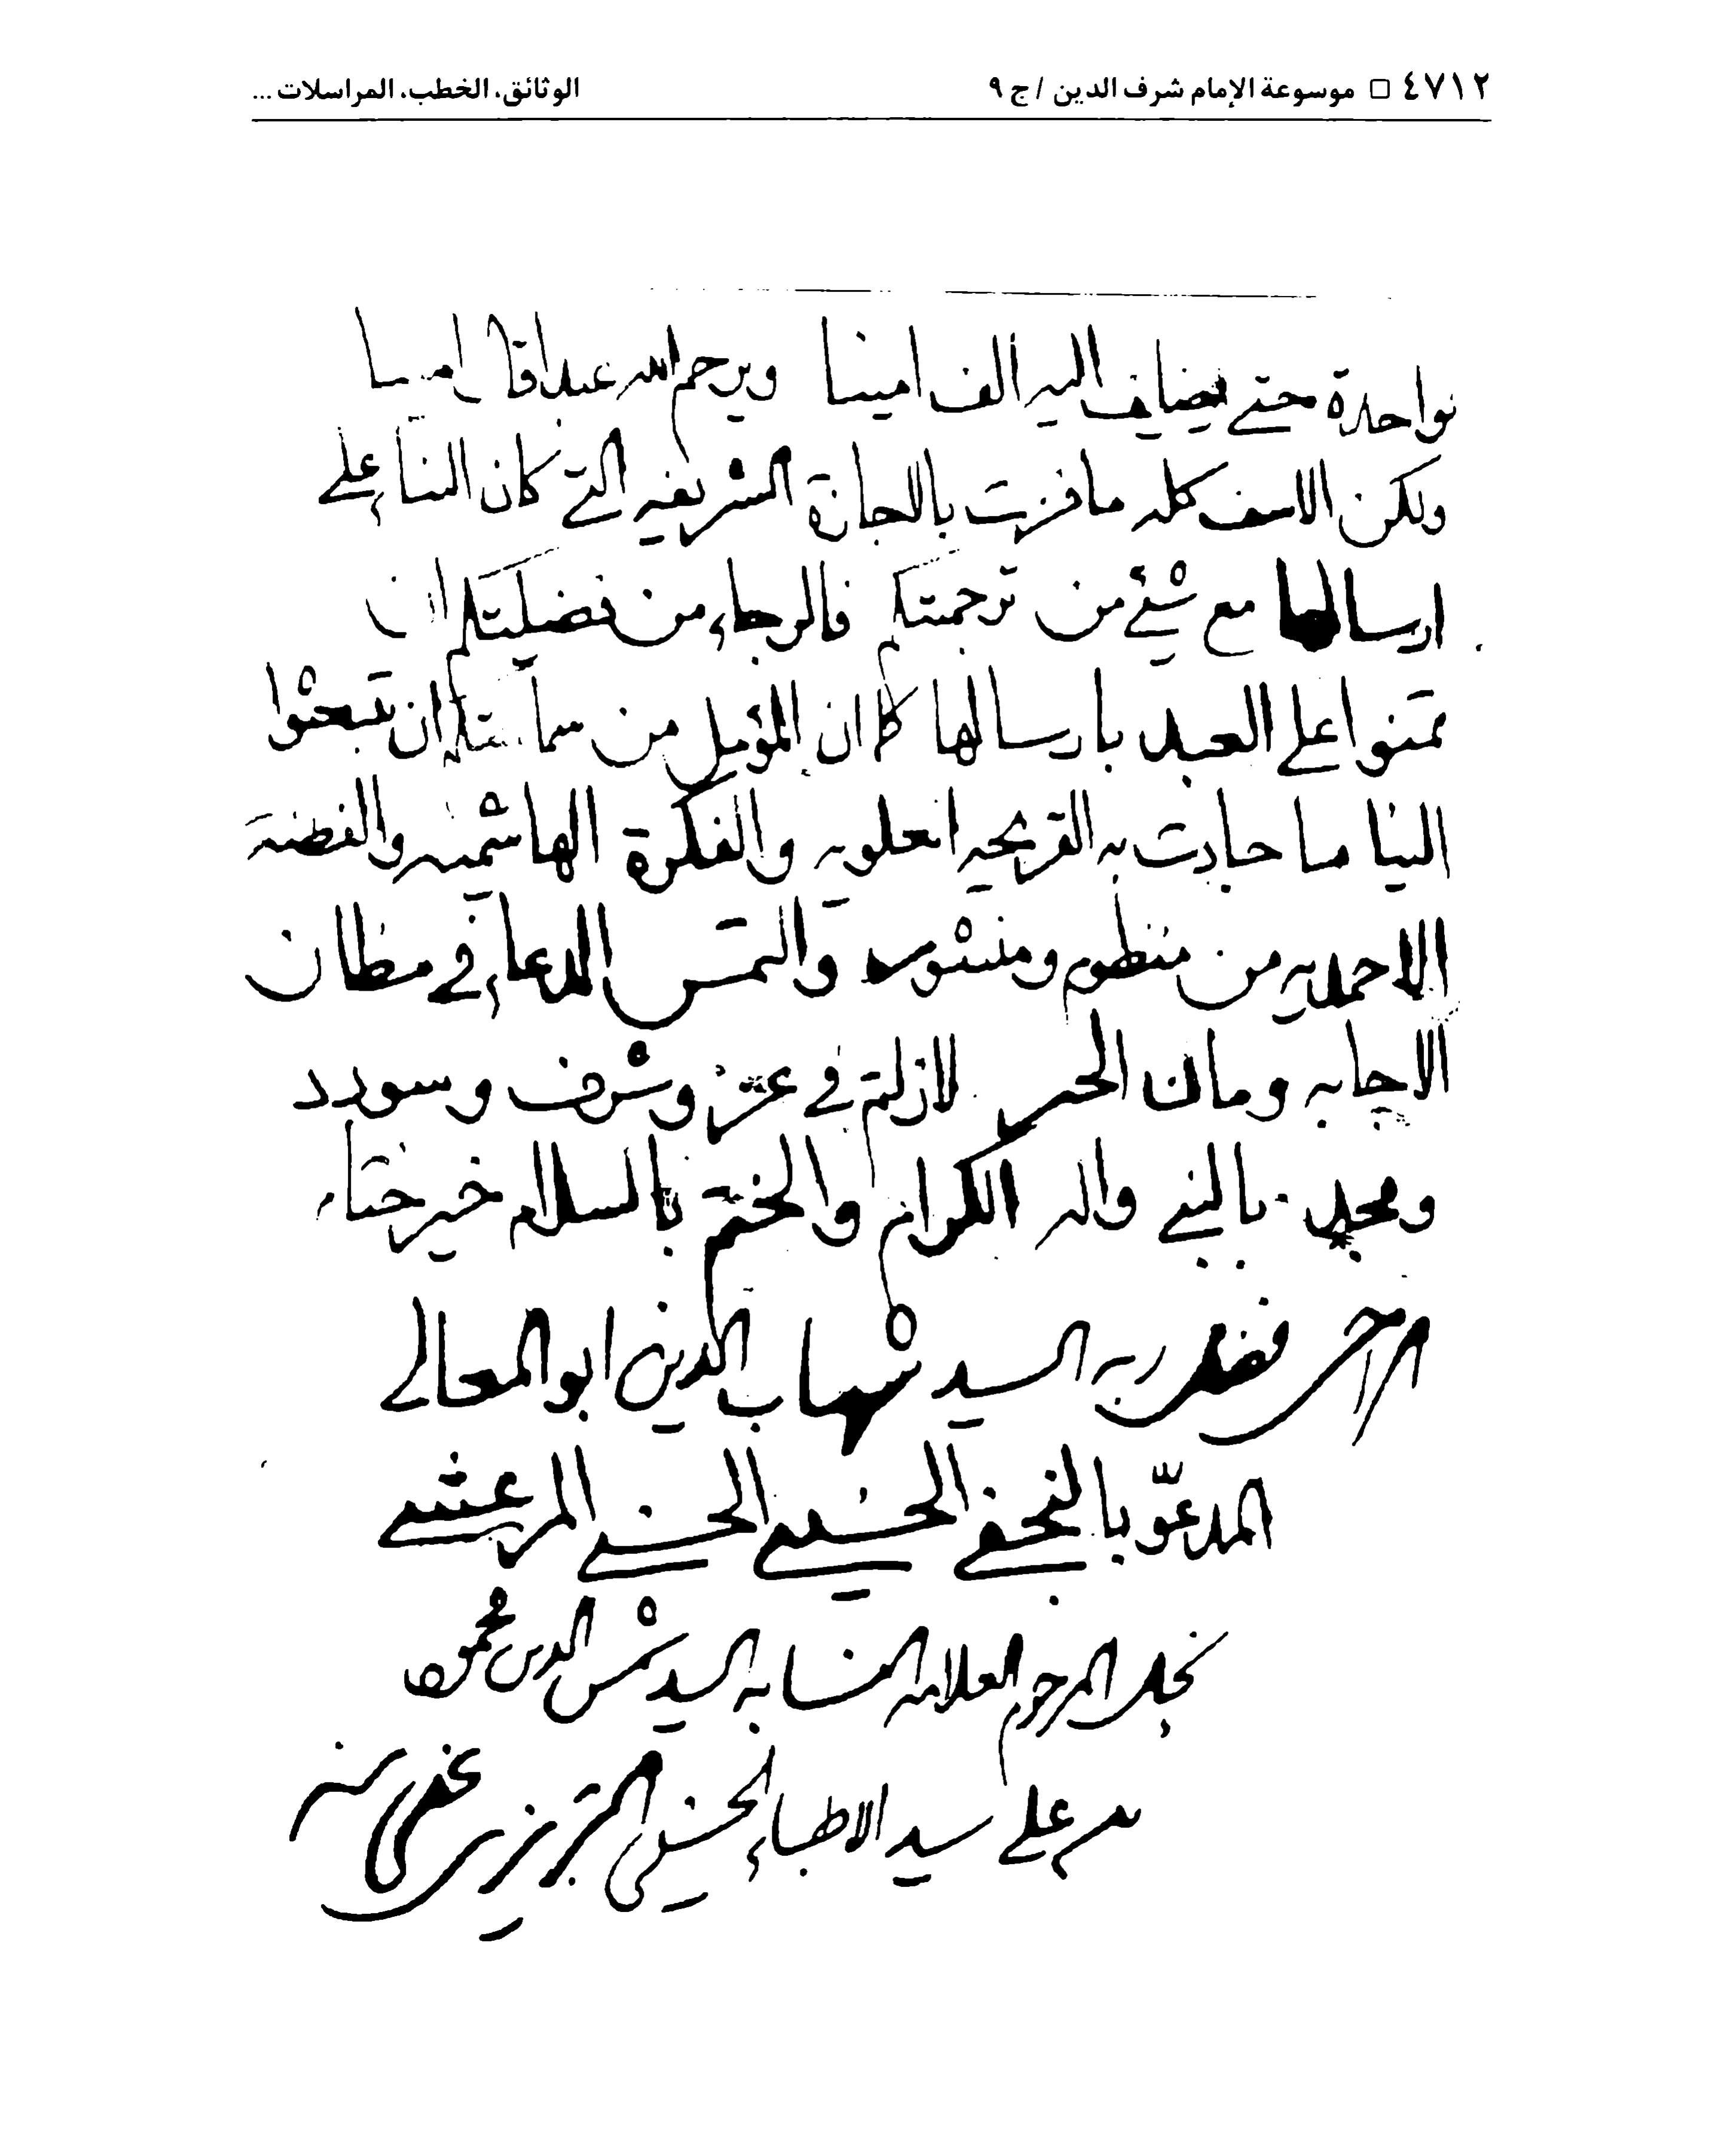 ٤٧١٢ □ موسوعة الإمام شرف الدين / ج ٩ الوثائق، الخطب، المراسلات ...
بواحدة حتى يضاف اليه الف امينا ويرحم الله عبدا قال امينا
ولكن الاسف كله ما فزت بالاجازة الشريفه التي كان البنأ على
ارسالها مع شئ من ترجمتكم فالرجاء من فضلكم ان
تمنوا على العبد بارسالها كما ان المؤمل من سماحتكم ان تبعثوا
الينا ما جادت به القريحه العلويه والفكرة الهاشميه والفطنة
الاحمديه من منظوم ومنثور والتمس الدعاء في مظان
الاجابه ومان الحر لازلتم في عز وشرف وسودد
ومجد بالنبي واله الكرام والختم بالسلام خير ختام
احرج فضل ربه السيد شهاب الدين ابو المعالي
المدعوّ بالنجفي الحسيني الحسني المرعشي
نجل المرحوم العلامه النسابه السيد شمس الدين محمود
بن علي سيد الاطباء الحسيني التبريزي عفي عنه